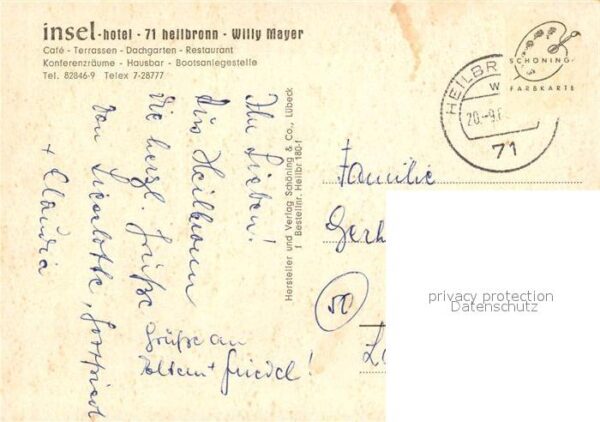 insel-hotel - 71 heilbronn - Willy Mayer
Café - Terrassen - Dachgarten - Restaurant
Konferenzräume - Hausbar - Bootsanlegestelle
Tel. 82846-9 Telex 7-28777
Ihr Lieben!
Aus Heilbronn
die herzl. Grüße
von Liselotte, Gottfried
+ Claudia
Grüße an
Eltern + Friedel!
Hersteller und Verlag Schöning & Co., Lübeck
Bestellnr. Heilbr 180-f
SCHÖNING-
FARBKARTE
HEILBR
20.-9.6
71
Familie
Gerh
50
privacy protection
Datenschutz